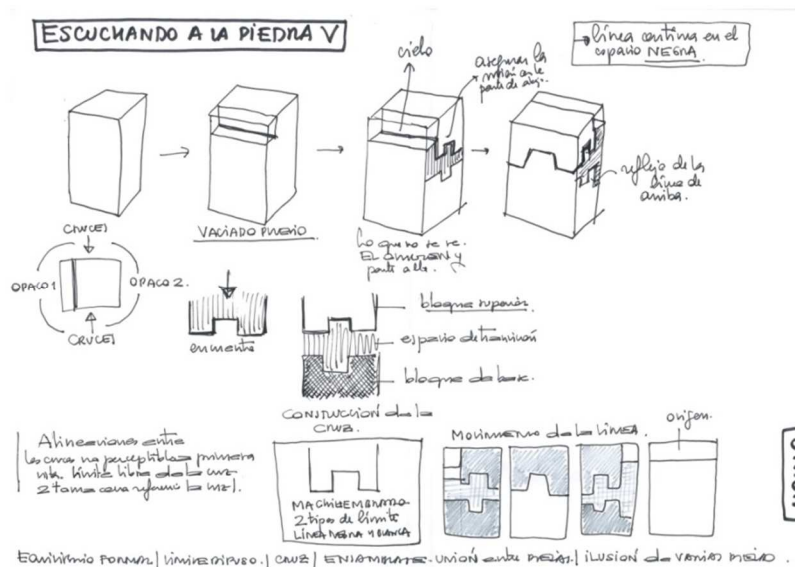 ESCUCHANDO A LA PIEDRA V
línea continua en el
espacio NEGRA
cielo
asegurar la
parte de
VACIADO PREVIO.
Lo que no se ve.
EL
y
reflejo de la
línea de
arriba.
CRUCES
OPACO 1
OPACO 2.
CRUCES
encuentro
bloque superior
espacio de transición
bloque de base.
CONSTRUCCION de la
CRUZ.
Alineaciones entre
las caras no perceptibles a primera
vista. Límite libre de la cruz
MACHIHEMBRADO
2 tipos de límite
LINEA NEGRA Y BLANCA
MOVIMIENTO de la LINEA.
origen.
EQUILIBRIO FORMAL / LIMITE DIFUSO. / CRUZ / ENSAMBLATE - UNIÓN entre PIEZAS / ILUSIÓN de VARIAS PIEZAS.